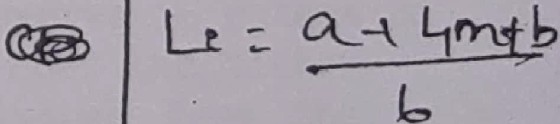 Le = a + 4m + b
6